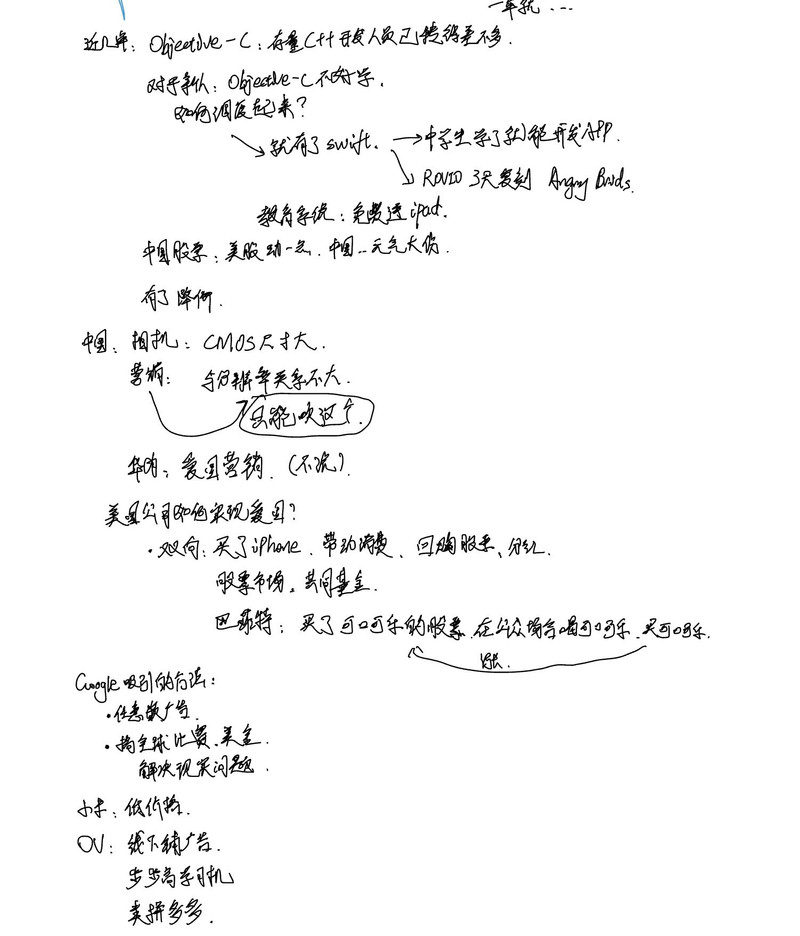 一年就...
近几年: Objective-C: 存量C++开发人员已转得差不多.
对于新人: Objective-C不好学.
如何调度起来?
就有了swift. → 中学生学了就能开发APP.
ROVIO 3天复刻 Angry Birds.
教育系统: 免费送ipad.
中国股票: 美股动一点. 中国..元气大伤.
有了降价.
中国: 相机: CMOS尺寸大.
营销: 与分辨率关系不大.
只能吹这个.
华为: 爱国营销. (不说).
美国公司如何实现爱国?
·双向: 买了iPhone. 带动消费、回购股票、分红.
股票市场。共同基金.
巴菲特: 买了可口可乐的股票. 在公众场合喝可口可乐. 买可口可乐.
涨.
Google吸引的方法:
·任意做广告.
·搞全球比赛、奖金.
解决现实问题.
小米: 低价格.
OV: 线下铺广告.
步步高学习机
类拼多多.